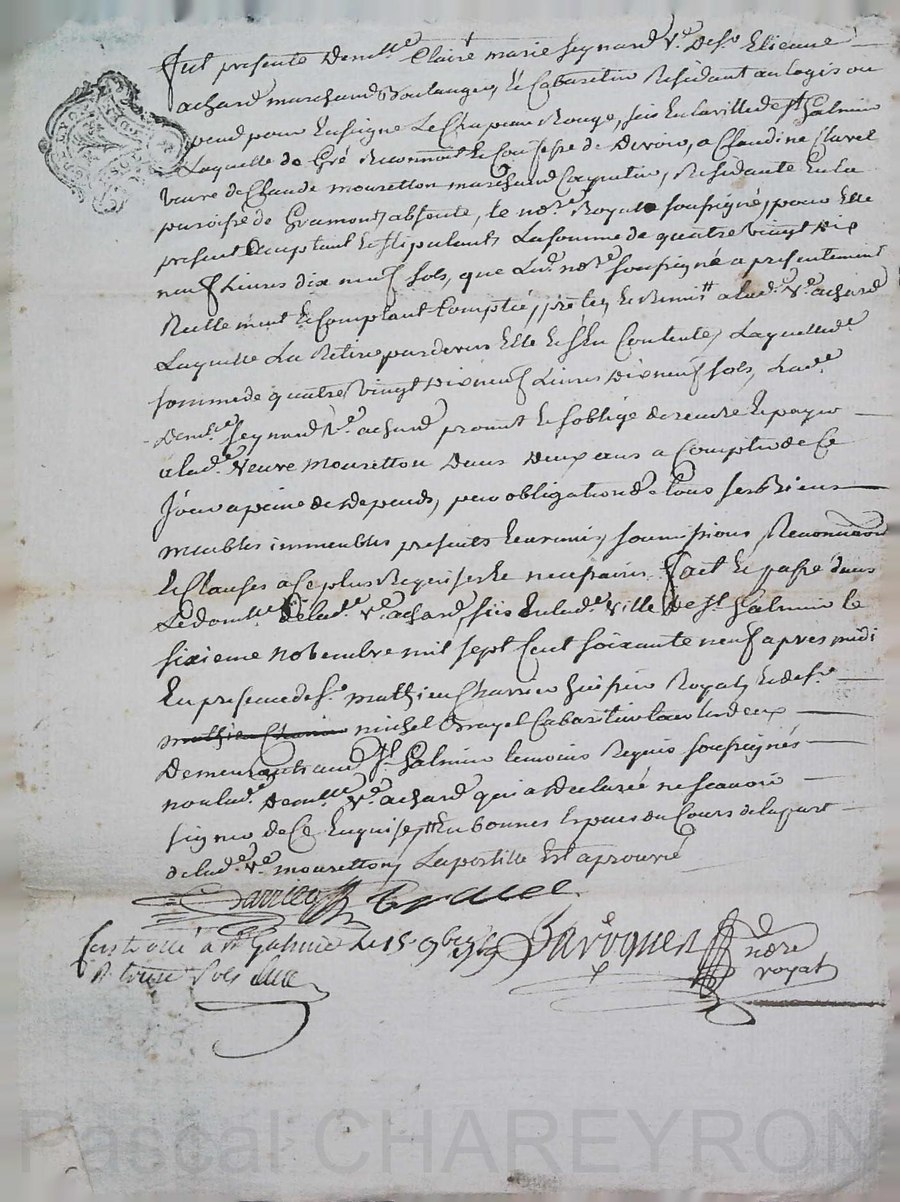 fut presente Dem.lle Claire marie seynard V.e de s.r Etienne
achard marchand Boulanger, et Cabaretier Residant au logis ou
pend pour Enseigne Le Chapeau Rouge, sis En la ville de s.t Galmier
Laquelle de Gré Reconnoit et Confesse de devoir, a Claudine Clavel
veuve de Claude mouretton marchand Coquetier, Residante En la
paroisse de Gramont, absente, le no.re Royal soussigné, pour Elle
present acceptant et stipulant, La somme de quatre vingt dix
neuf Livres dix neuf sols, que Led. no.re soussigné a presentement
Reellement et Comptant Comptée, pretée, et Remise a lad.e V.e achard
Laquelle La Retire par devers Elle Et s'En Contente, Laquelle d.e
somme de quatre vingt dix neuf Livres dix neuf sols, Lad.e
dem.lle seynard V.e achard promet et s'oblige de rendre et payer
a lad.e Veuve mouretton dans deux ans a Compter de Ce
jour a peine de depends, par obligation de tous ses Biens
meubles immeubles presents et avenir, soumissions, Renonciations
et Clauses a Ce plus Requises et necessaires, fait et passé dans
Le dom.lle de lad.e V.e achard, sis En lad.e ville de s.t Galmier le
sixieme novembre mil sept Cent soixante neuf apres midi
En presence de s.r mathieu Charrier huissier Royal, et de s.r
mathieu Charrier michel Brayel Cabaretier tous deux
Demeurants aud. s.t Galmier temoins Requis soussignés
non lad.e dem.lle V.e achard qui a declaré ne scavoir
signer de Ce Enquise, Et En bonnes Especes du Cours de la part
de lad.e V.e mouretton, Lapostille Est aprouvée
Charrier Brayel
Controllé à s.t Galmier le 15 9bre 1769
R treize sols
Baroquer no.re
royal
Pascal CHAREYRON